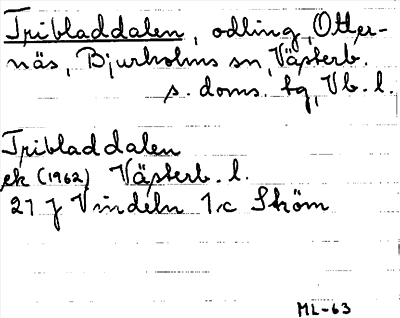 Tribladdalen, odling, Otter-
näs, Bjurholms sn, Västerb.
s. doms. tg, Vb. l.
Tribladdalen
ek (1962) Västerb. l.
21 J Vindeln 1c Sköm
ML-63